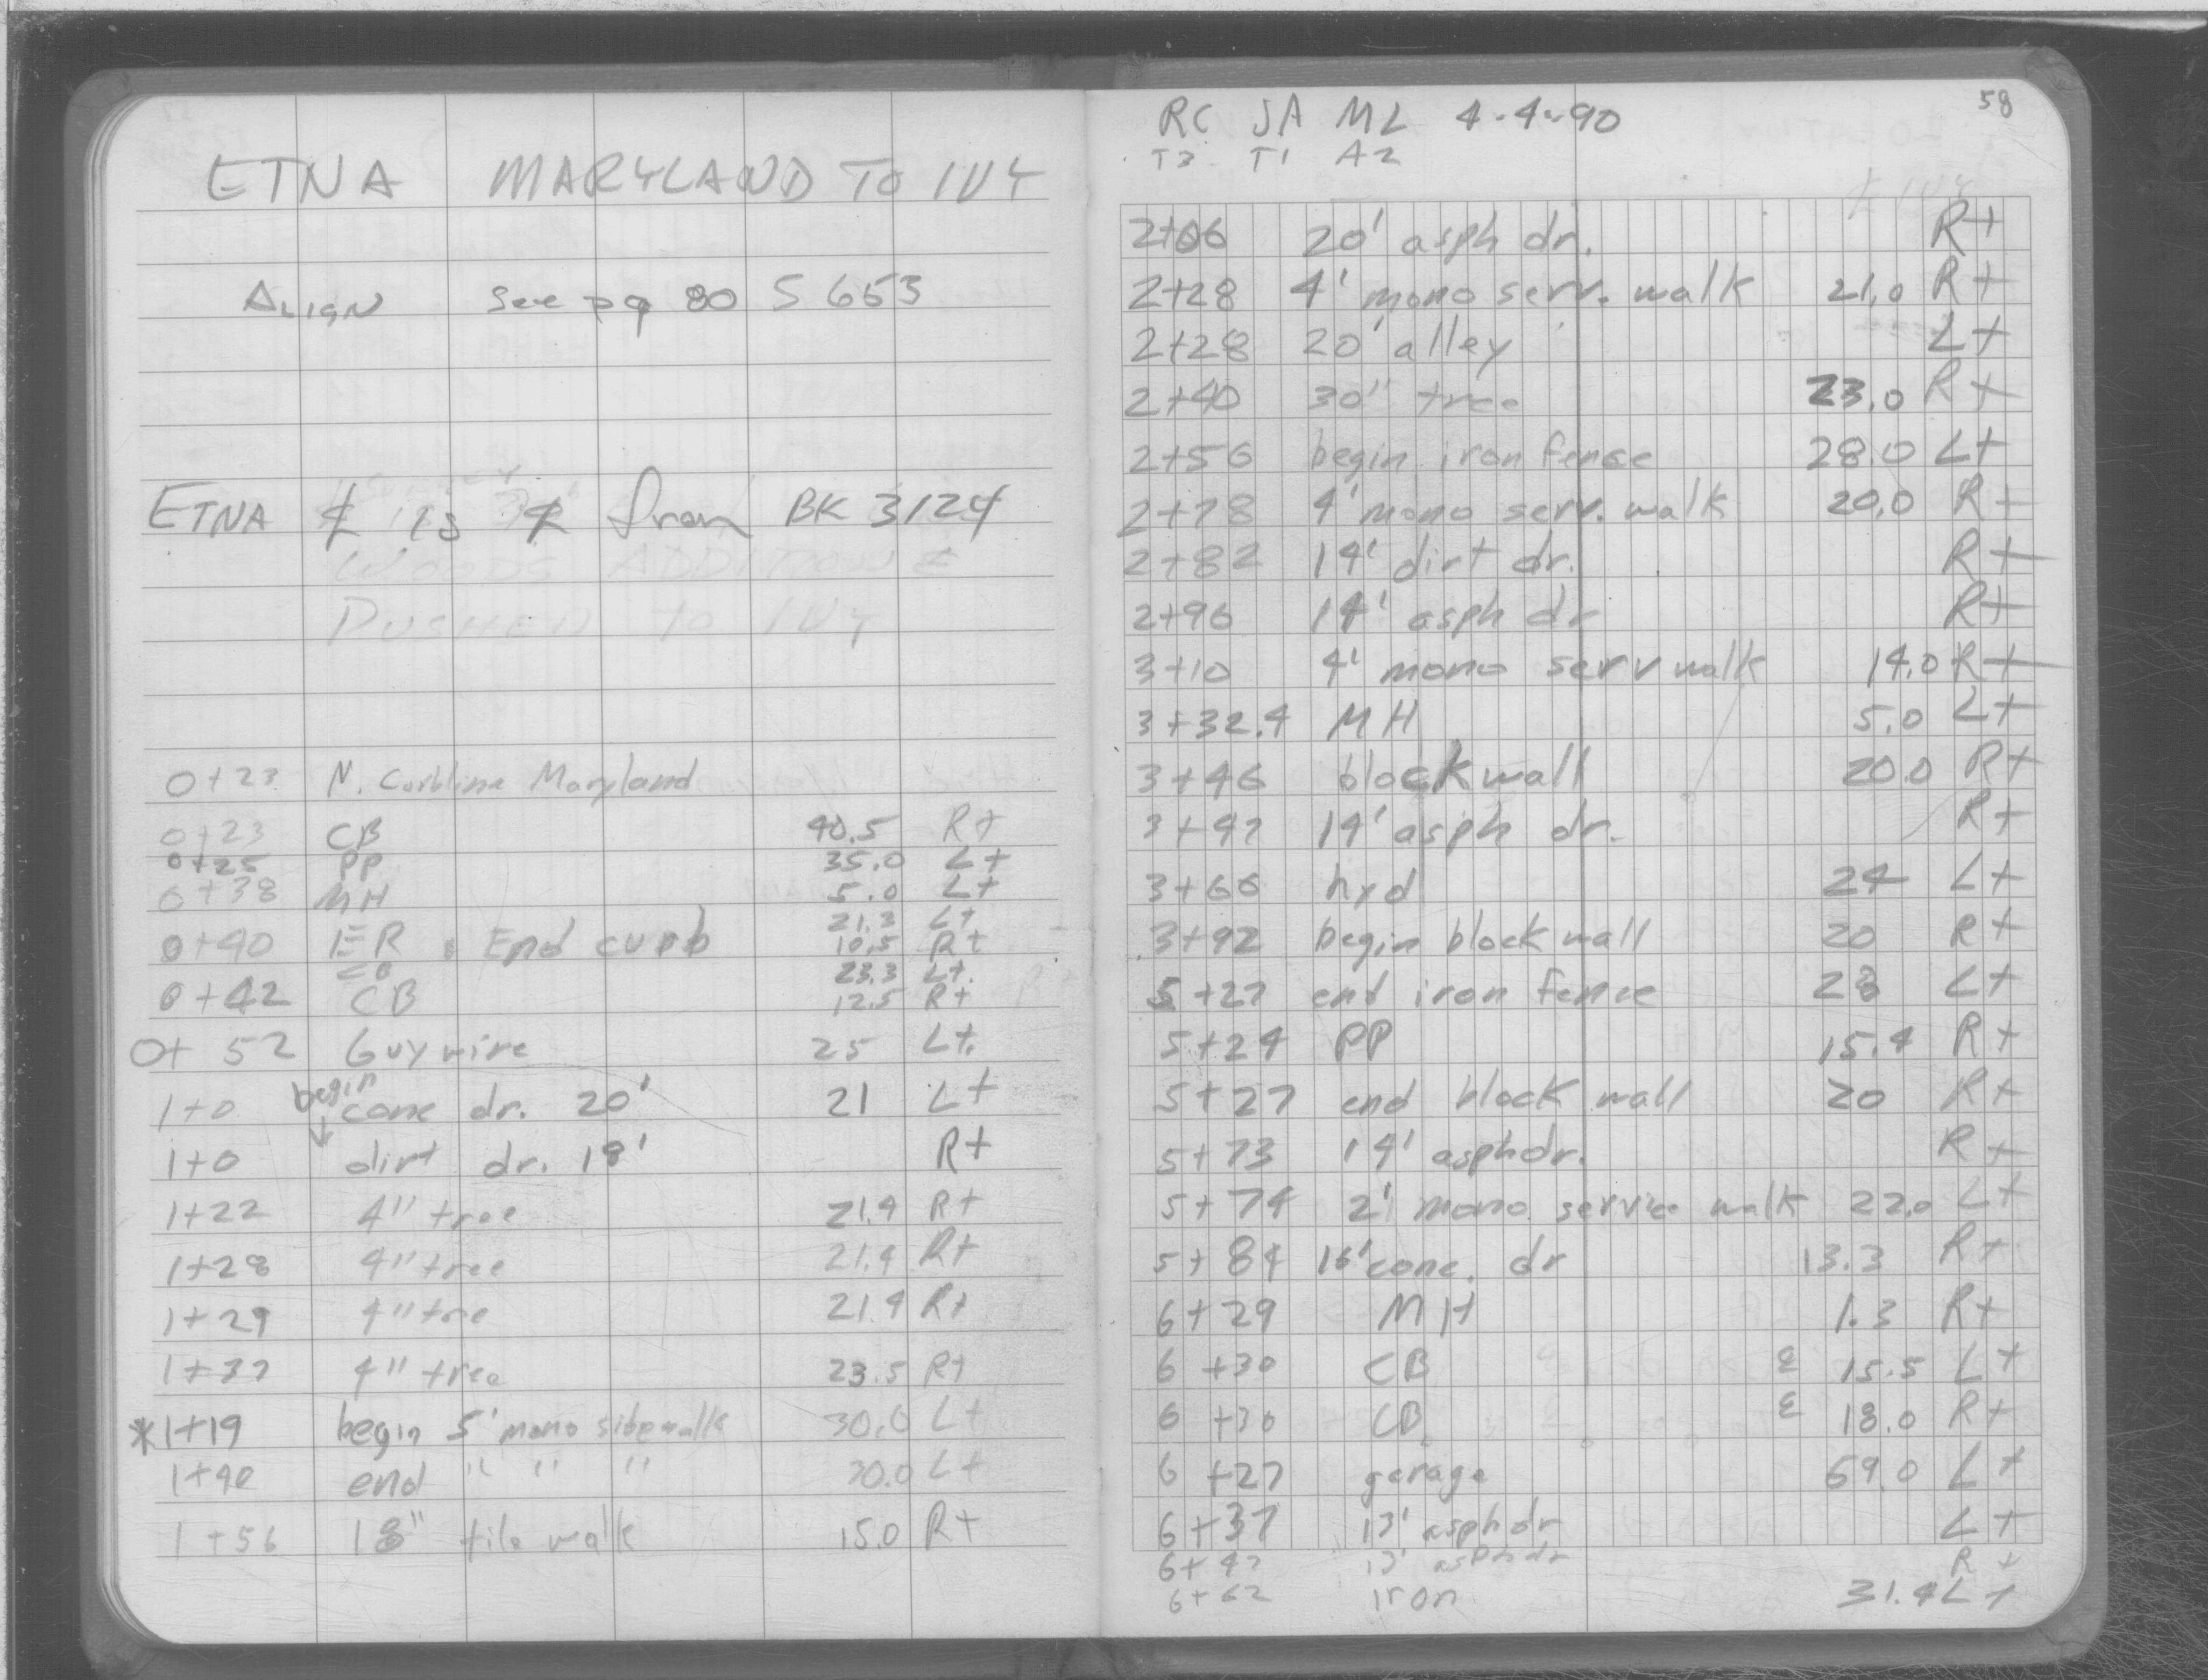 ETNA MARYLAND TO IVY
ALIGN See pg 80 S 653
ETNA ₵ is ₵ from BK 3124
WOODS ADDITION ₵
PUSHED TO IVY
0+23 N. Curbline Maryland
0+23 CB 40.5 Rt
0+25 PP 35.0 Lt
0+38 MH 5.0 Lt
21.3 Lt
0+40 ER & End curb 10.5 Rt
CB 23.3 Lt.
0+42 CB 12.5 Rt
0+52 Guy wire 25 Lt.
begin
1+0 conc dr. 20' 21 Lt
1+0 dirt dr. 18' Rt
1+22 4" tree 21.4 Rt
1+28 4" tree 21.4 Rt
1+29 4" tree 21.4 Rt
1+37 4" tree 23.5 Rt
*1+19 begin 5' mono sidewalk 30.0 Lt
1+40 end " " " 30.0 Lt
1+56 18" tile walk 15.0 Rt
58
RC JA ML 4-4-90
T3 T1 A2
₵ IVY
2+06 20' asph dr. Rt
2+28 4' mono serv. walk 21.0 Rt
2+28 20' alley Lt
2+40 30" tree 23.0 Rt
2+56 begin iron fence 28.0 Lt
2+78 4' mono serv. walk 20.0 Rt
2+82 14' dirt dr. Rt
2+96 14' asph dr Rt
3+10 4' mono serv walk 14.0 Rt
3+32.4 MH 5.0 Lt
3+46 block wall 20.0 Rt
3+47 14' asph dr. Rt
3+66 hyd 24 Lt
3+92 begin block wall 20 Rt
5+27 end iron fence 28 Lt
5+24 PP 15.4 Rt
5+27 end block wall 20 Rt
5+73 14' asph dr. Rt
5+74 2' mono service walk 22.0 Lt
5+84 16' conc. dr 13.3 Rt
6+29 MH 1.3 Rt
6+30 CB 15.5 Lt
6+30 CB 18.0 Rt
6+27 garage 69.0 Lt
6+37 13' asph dr Lt
6+47 13' asph dr Rt
6+62 iron 31.4 Lt